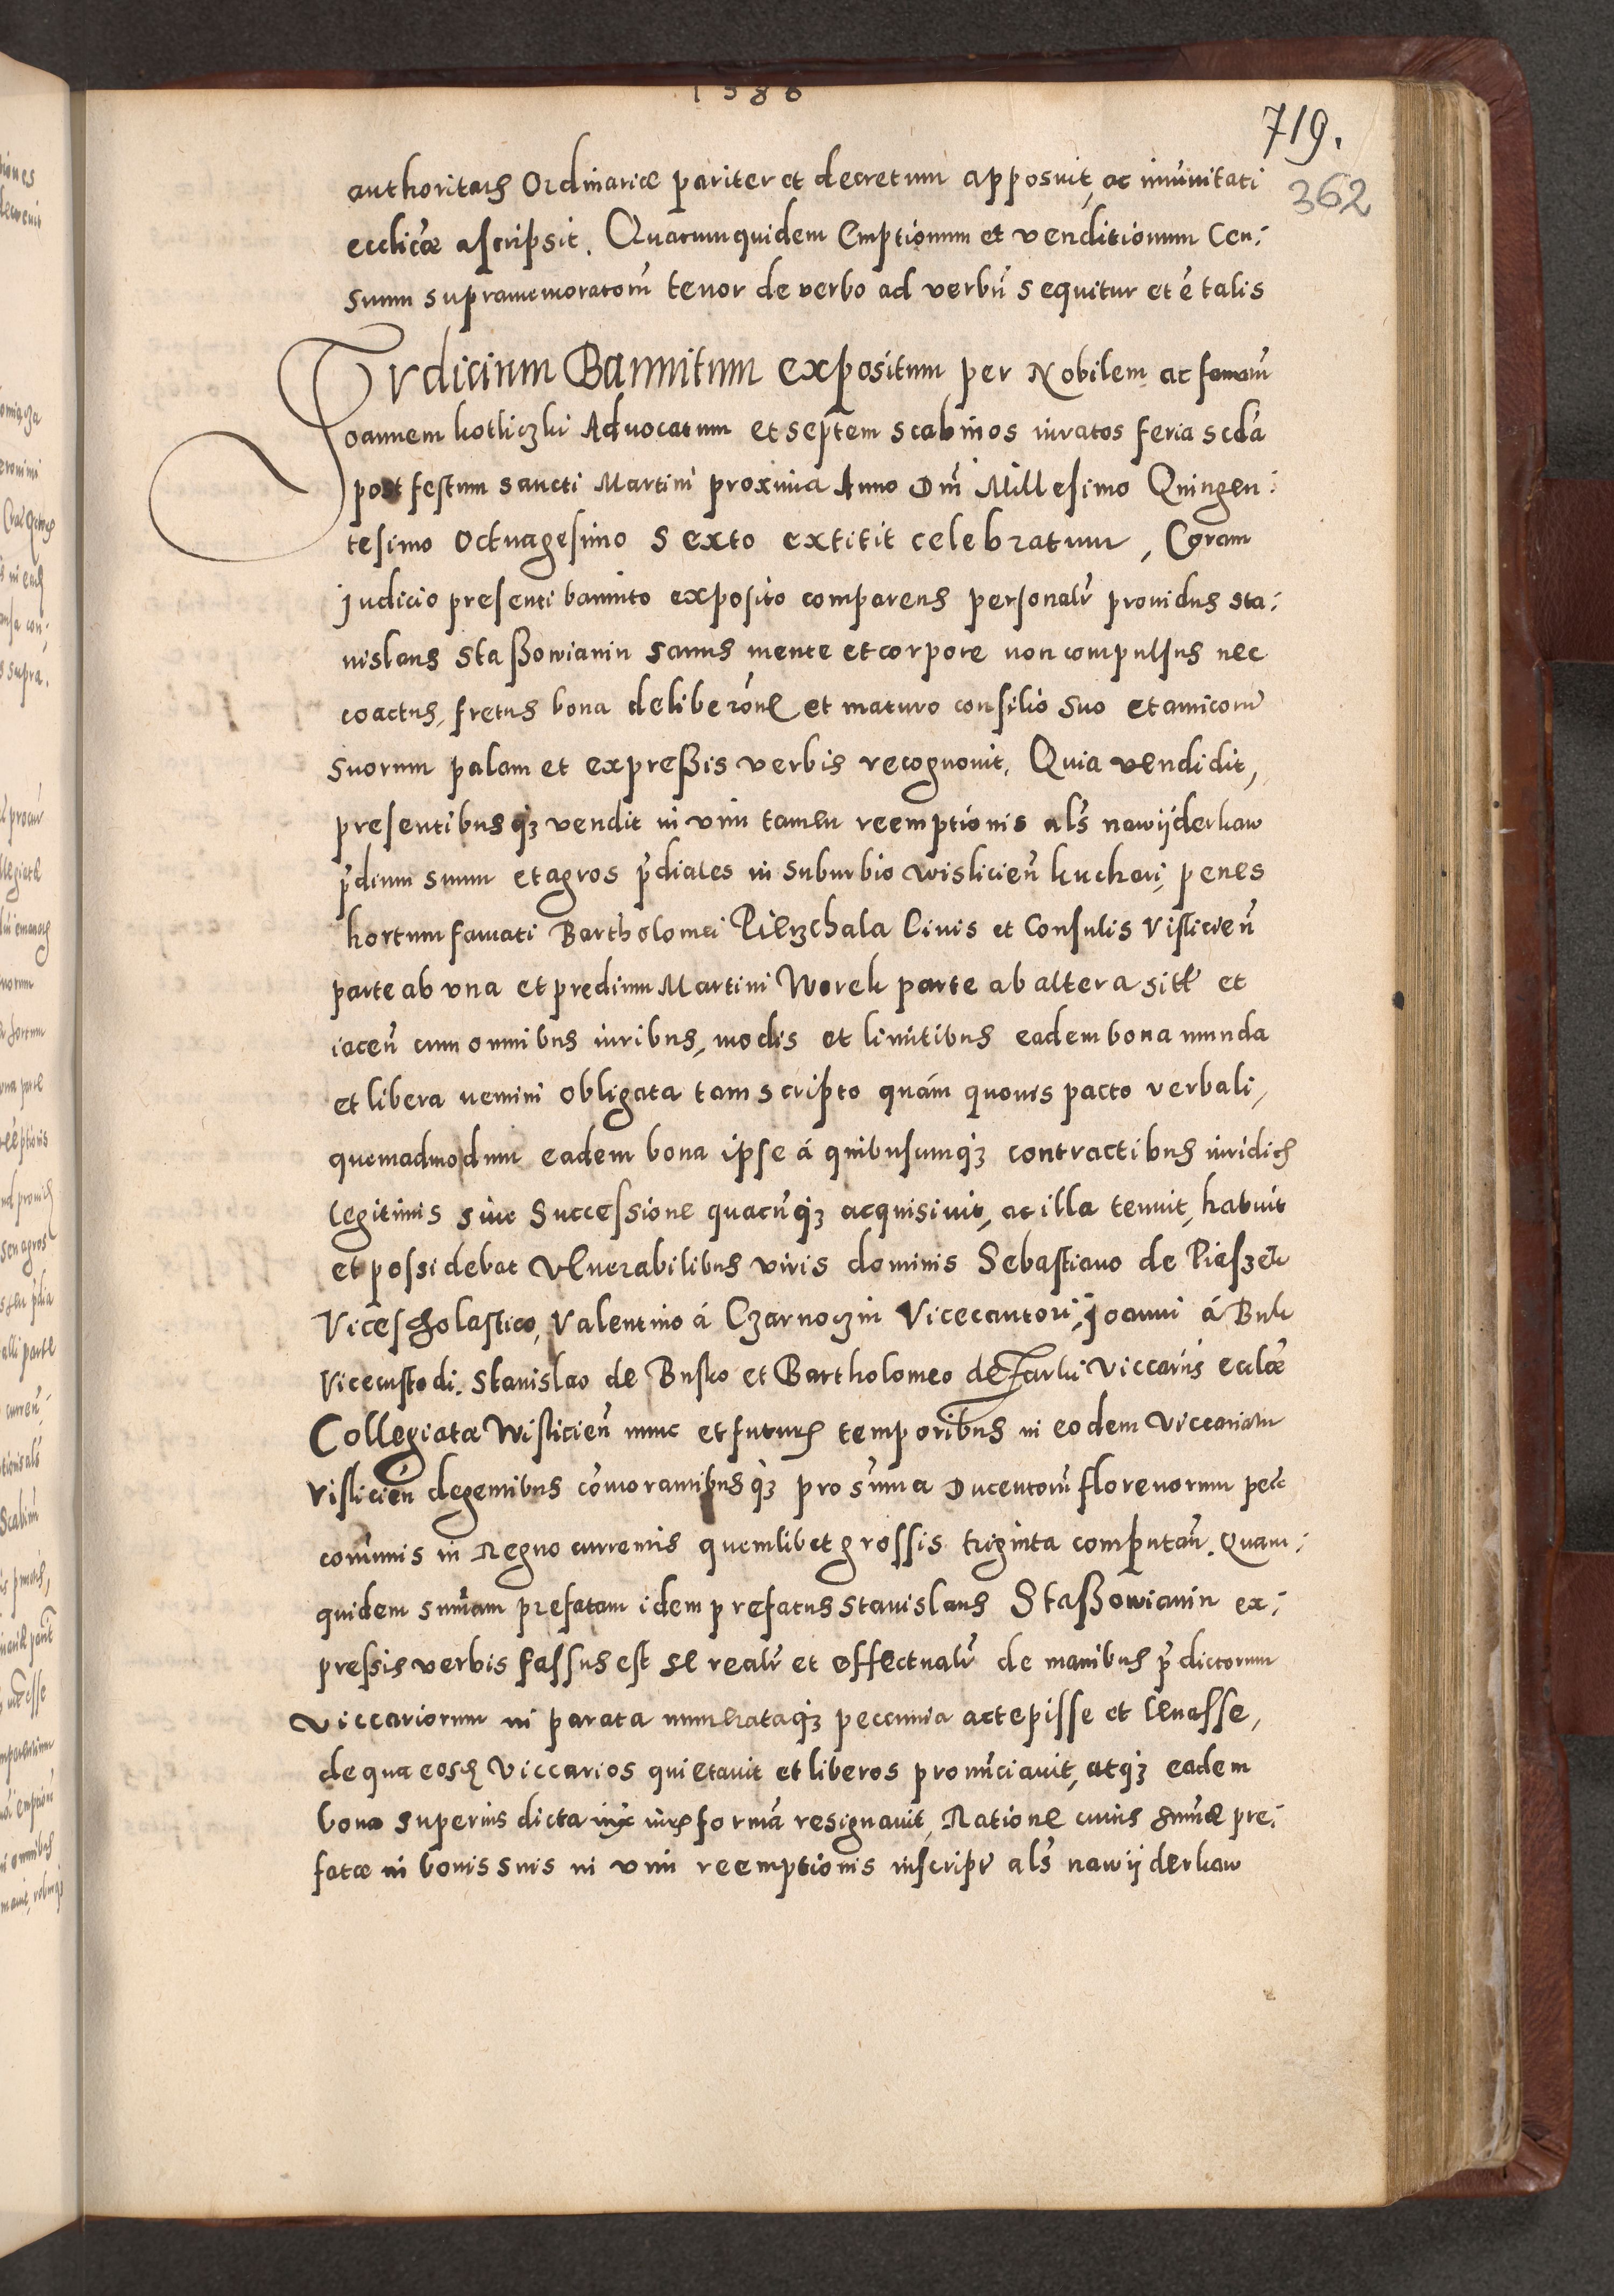 1586
719.
362
authoritatis Ordinariæ pariter et decretum apposuit, ac im̄unitati
eccl̄icæ ascripsit. Quarumquidem Emptionum et venditionum Cen⸗
suum supramemoratorū tenor de verbo ad verbū sequitur et ē talis
Iudicium Bannitum expositum per Nobilem ac famatū
Ioannem kotliczki Advocatum et septem scabinos iuratos feria scd̄a
post festum sancti Martini proxima Anno Dn̄i Millesimo Quingen⸗
tesimo Octuagesimo Sexto extitit celebratum, Coram
iudicio presenti bannito exposito comparens personalr̄ prouidus Sta⸗
nislaus Staßowianin sanus mente et corpore non compulsus nec
coactus, fretus bona deliberōne et maturo consilio suo et amicorū
suorum palam et expreßis verbis recognouit. Quia vendidit,
presentibusq3 vendit in vim tamen reemptionis als̄ nawijderkaw
p̄dium suum et agros p̄diales in suburbio wislicien̄ kuchari, penes
hortum famati Bartholomei Pierzchala Ciuis et Consulis Vislicien̄
parte ab vna et predium Martini Worek parte ab altera sitt̄ et
iacen̄ cum omnibus iuribus, modis et limitibus eadem bona munda
et libera nemini obligata tam scripto quám quouis pacto verbali,
quemadmodum eadem bona ipse á quibuscumq3 contractibus iuridicis
legitimis siue Successione quacūq3 acquisiuit, ac illa tenuit, habuit
et possidebat Venerabilibus viris dominis Sebastiano de Piasek
Vicescholastico, Valentino á Czarnoczin Vicecantori, Joanni á Buk
Vicecustodi. Stanislao de Busko et Bartholomeo de Tarlu Viccarijs eccl̄æ
Collegiatæ Wislicien̄ nunc et futuris temporibus in eodem Viccariatu
Vislicien̄ degentibus cōmorantibusq3 pro sum̄a Ducentorū florenorum pecc̄
com̄unis in Regno currentis quemlibet grossis triginta computan̄. Quam⸗
quidem sum̄am prefatam idem prefatus Stanislaus Staßowianin ex⸗
pressis verbis fassus est se realr̄ et effectualr̄ de manibus p̄dictorum
Viccariorum in parata numerataq3 pecunia accepisse et leuasse,
de qua eosd̄ Viccarios quietauit et liberos pronūciauit, atq3 eadem
bona superius dicta iuris formā resignauit, Ratione cuius sum̄æ pre⸗
fatæ in bonis suis in vim reemptionis inscript̄ als̄ nawijderkaw